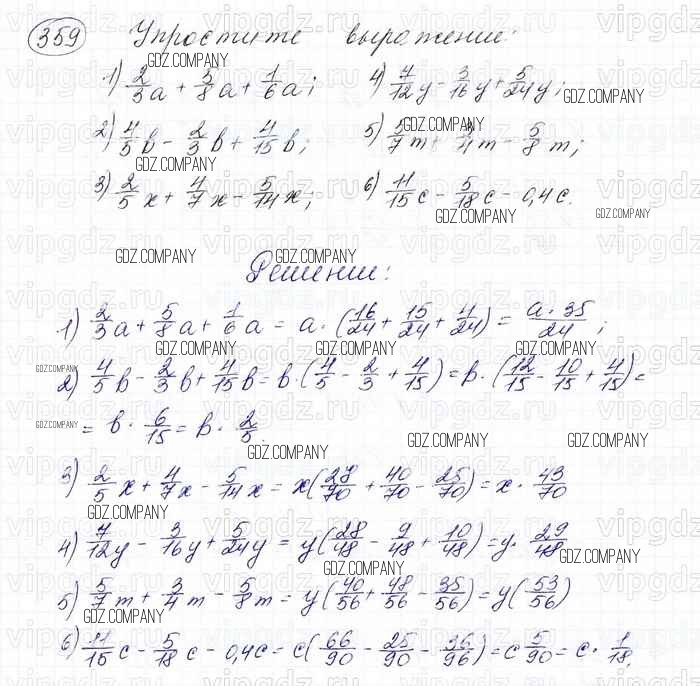 359 Упростите выражение:
1) 2/3 a + 5/8 a + 1/6 a; 4) 7/12 y - 3/16 y + 5/24 y;
2) 4/5 b - 2/3 b + 4/15 b; 5) 5/7 m + 3/4 m - 5/8 m;
3) 2/5 x + 4/7 x - 5/14 x; 6) 11/15 c - 5/18 c - 0,4 c.
Решение:
1) 2/3 a + 5/8 a + 1/6 a = a · (16/24 + 15/24 + 4/24) = a · 35/24;
2) 4/5 b - 2/3 b + 4/15 b = b · (4/5 - 2/3 + 4/15) = b · (12/15 - 10/15 + 4/15) =
= b · 6/15 = b · 2/5.
3) 2/5 x + 4/7 x - 5/14 x = x (28/70 + 40/70 - 25/70) = x · 43/70
4) 7/12 y - 3/16 y + 5/24 y = y (28/48 - 9/48 + 10/48) = y · 29/48
5) 5/7 m + 3/4 m - 5/8 m = y (40/56 + 48/56 - 35/56) = y (53/56)
6) 11/15 c - 5/18 c - 0,4 c = c (66/90 - 25/90 - 36/96) = c 5/90 = c · 1/18.
GDZ.COMPANY
vipgdz.ru